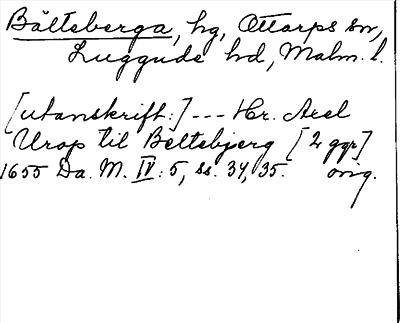 Bälteberga, hg, Ottarps sn,
Luggude hd, Malm. l.
[utanskrift:] --- Hr. Axel
Urop til Beltebjerg [2 ggr]
1655 Da. M. IV: 5, ss. 34, 35. orig.